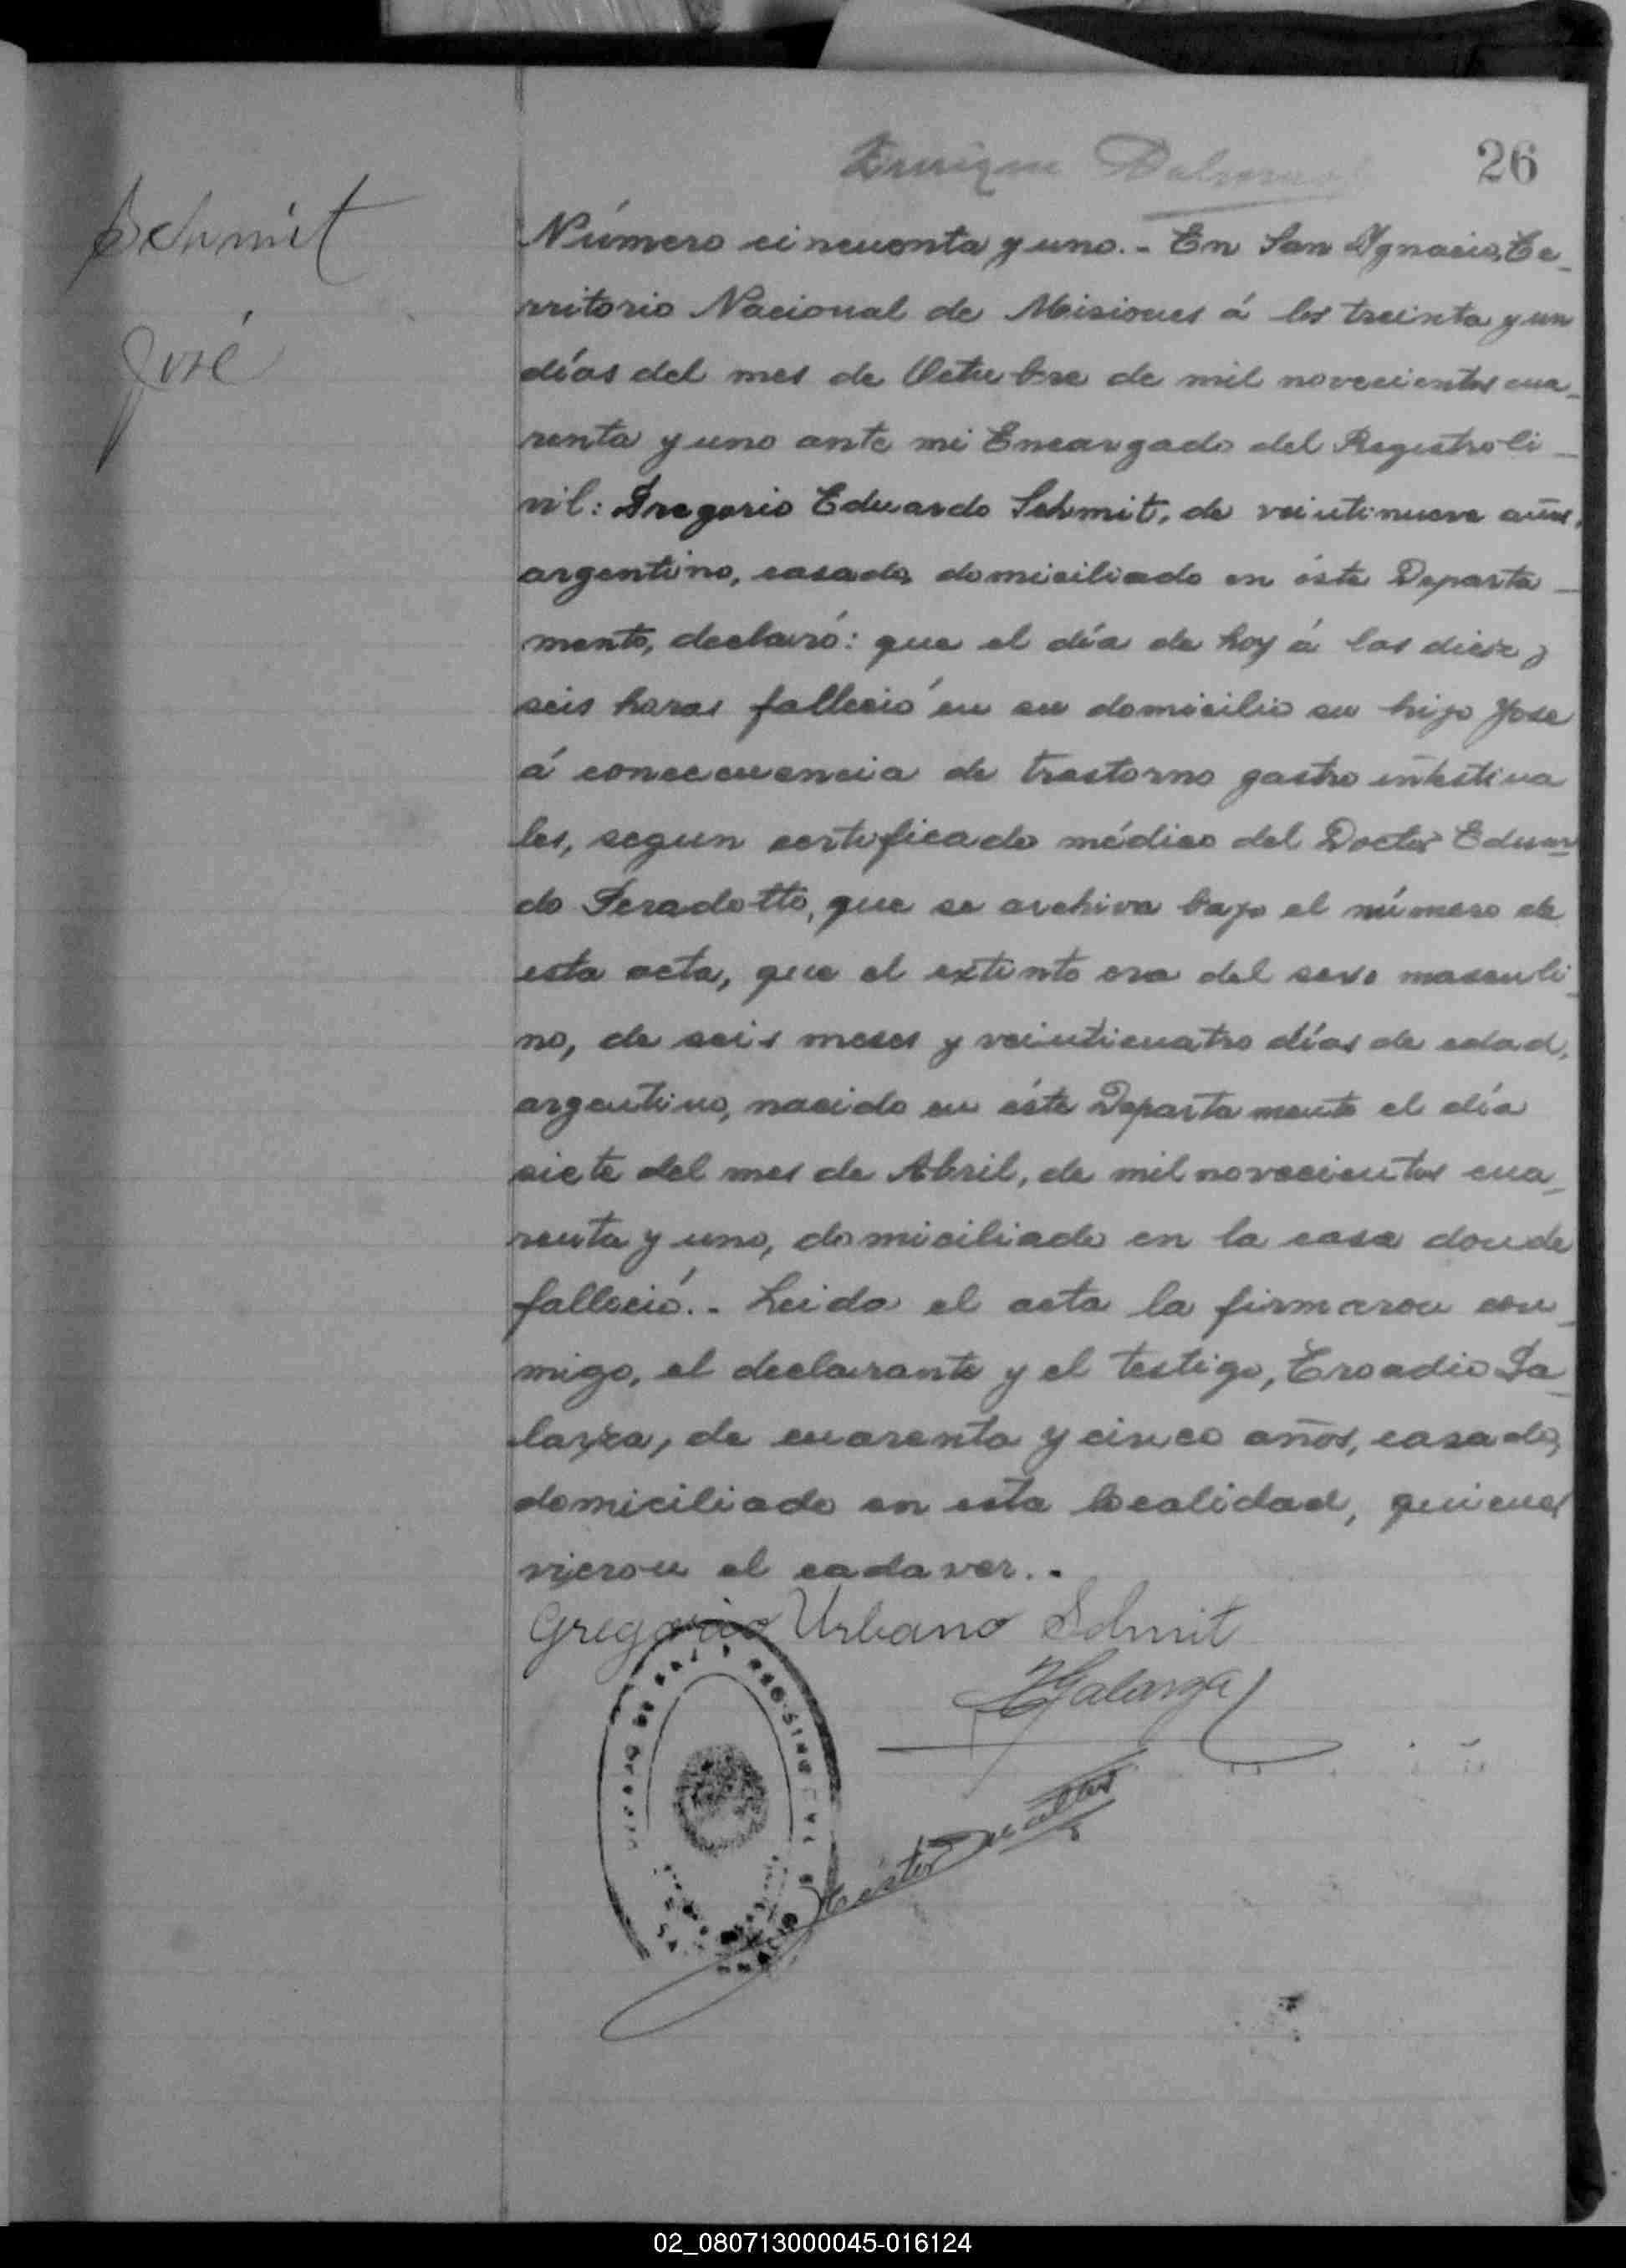 26
Schmit
José
Número cincuenta y uno.- En San Ygnacio, Te-
rritorio Nacional de Misiones á los treinta y un
días del mes de Octubre de mil novecientos cua-
renta y uno ante mi Encargado del Registro Ci-
vil: Gregorio Eduardo Schmit, de veintinueve años,
argentino, casado, domiciliado en éste Departa-
mento, declaró: que el día de hoy á las diez y
seis horas falleció en su domicilio su hijo José
á concecuencia de trastorno gastro intestina
les, segun certificado médico del Doctor Eduar
do Peradotto, que se archiva bajo el número de
esta acta, que el extinto era del sexo masculi-
no, de seis meses y veinticuatro días de edad,
argentino, nacido en éste Departamento el día
siete del mes de Abril, de mil novecientos cua-
renta y uno, domiciliado en la casa donde
falleció.- Leida el acta la firmaron con-
migo, el declarante y el testigo, Eroadio Ga-
larza, de cuarenta y cinco años, casado,
domiciliado en esta localidad, quienes
vieron el cadaver.-
Gregorio Urbano Schmit
Galarza
02_080713000045-016124